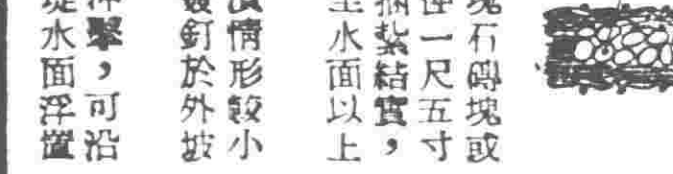 塊石磚塊或
徑一尺五寸
捆紮結實，
水面以上
情形較小
釘於外坡
擊，可沿
堤水面浮置